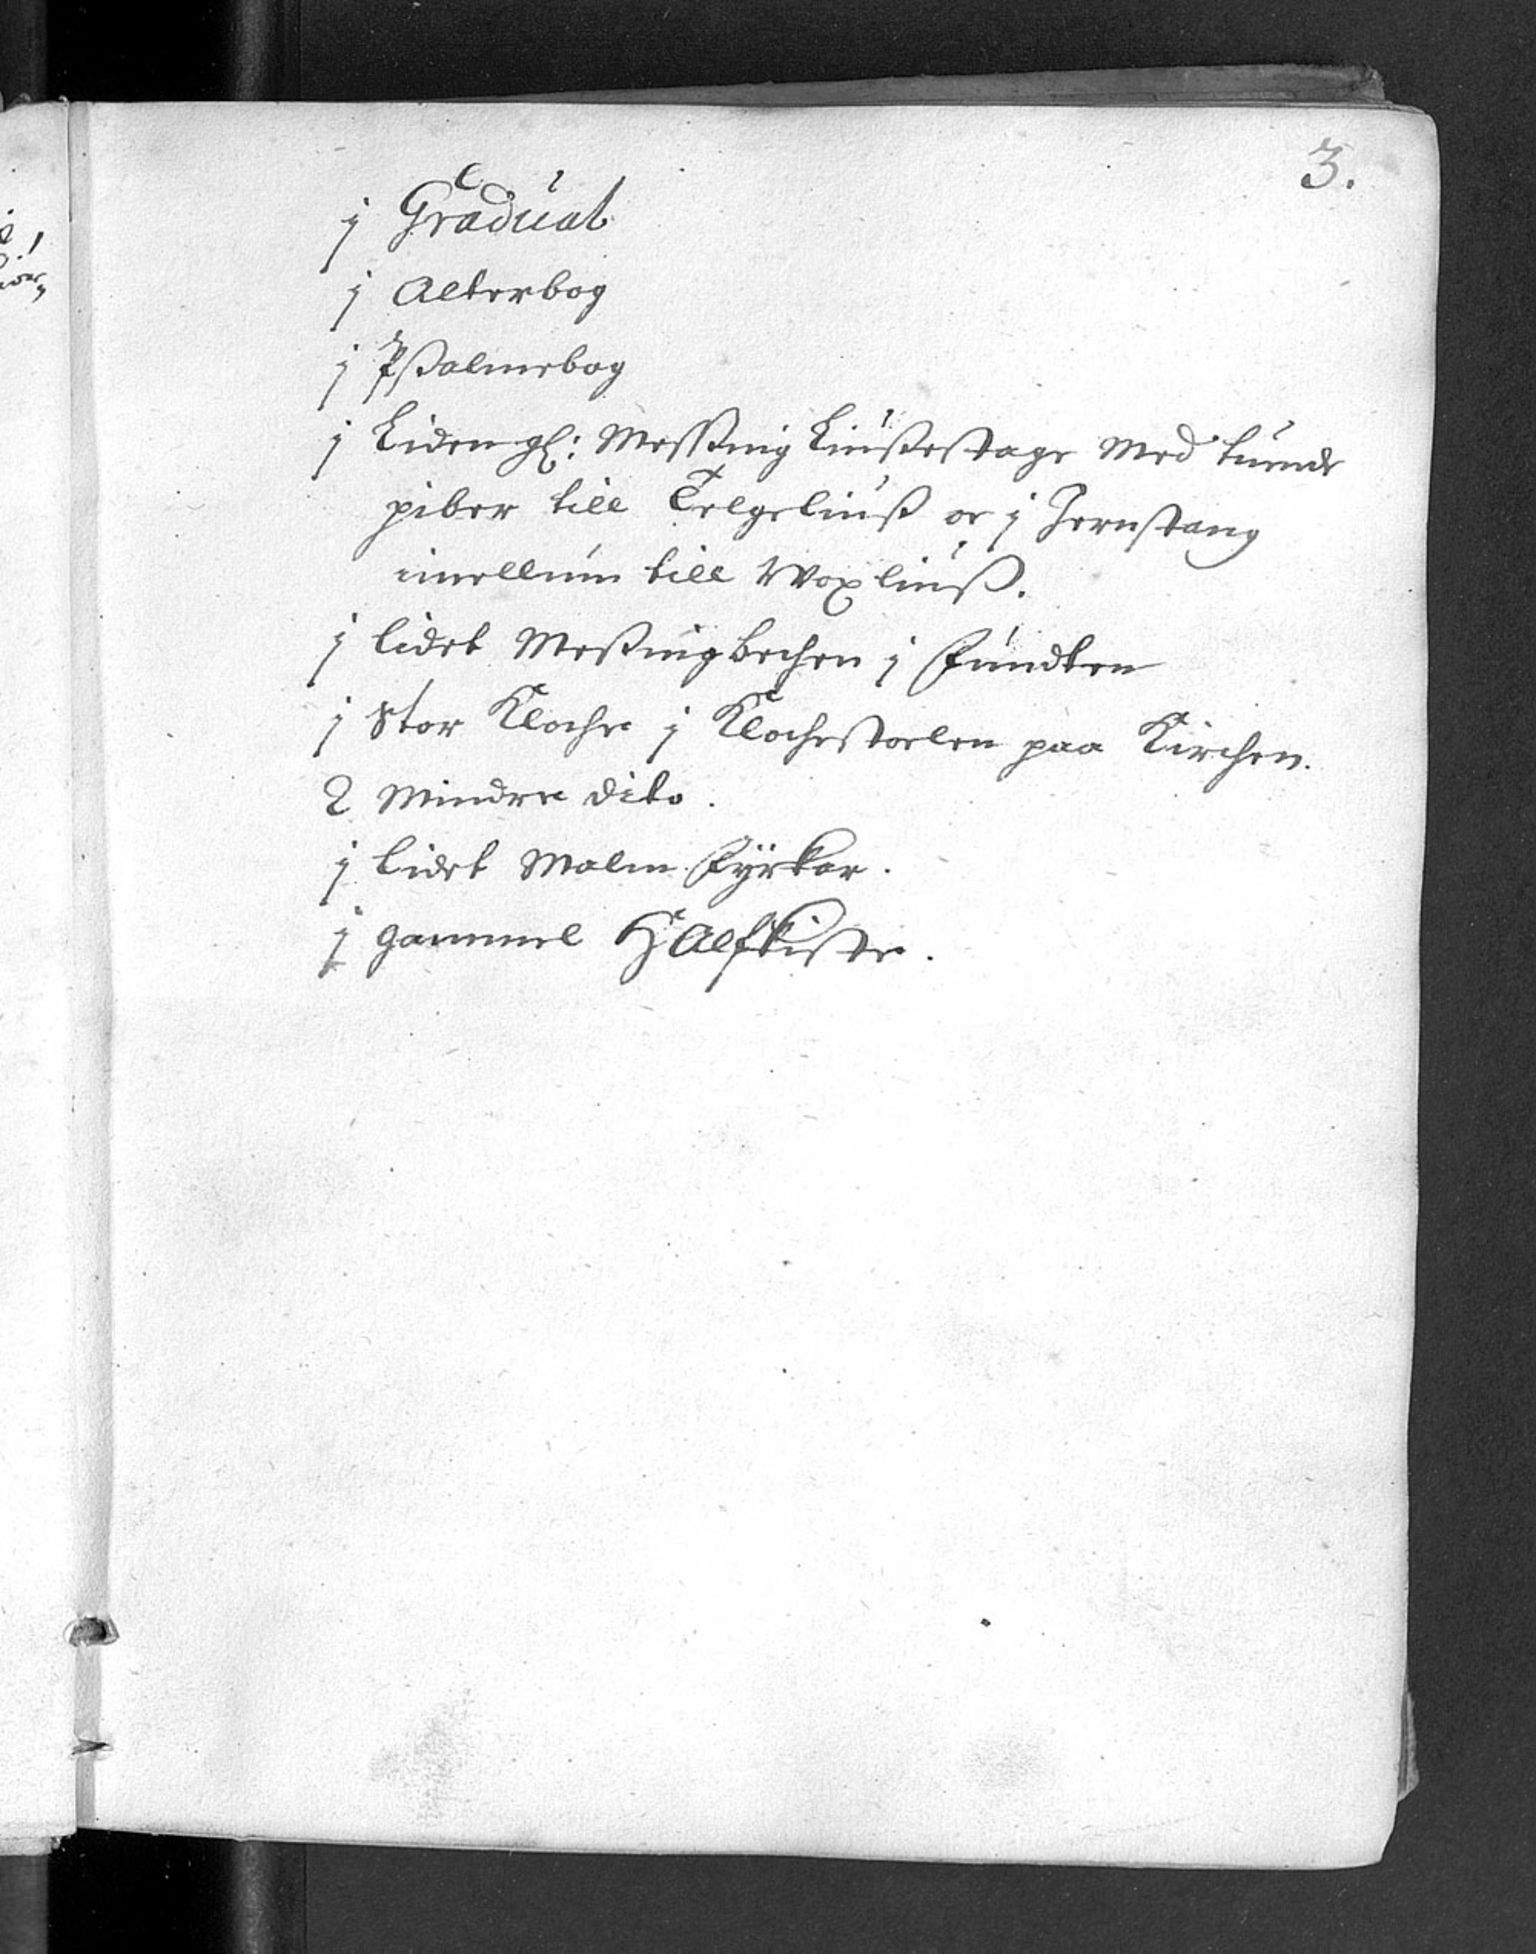 3.
j Gradual
j Alterbog
j Pßalmebog
j Liden gl: Messing Liußestage Med tuende
piber till Telgeliuß oc j Jernstang
imellum till Woxliuß.
j lidet Meßingbechen j Fundten
j Stor Kloche j Klochestoelen paa Kirchen.
2 Mindre dito.
j lidet Malm Fyrkar.
j gammel HAlfkiste.